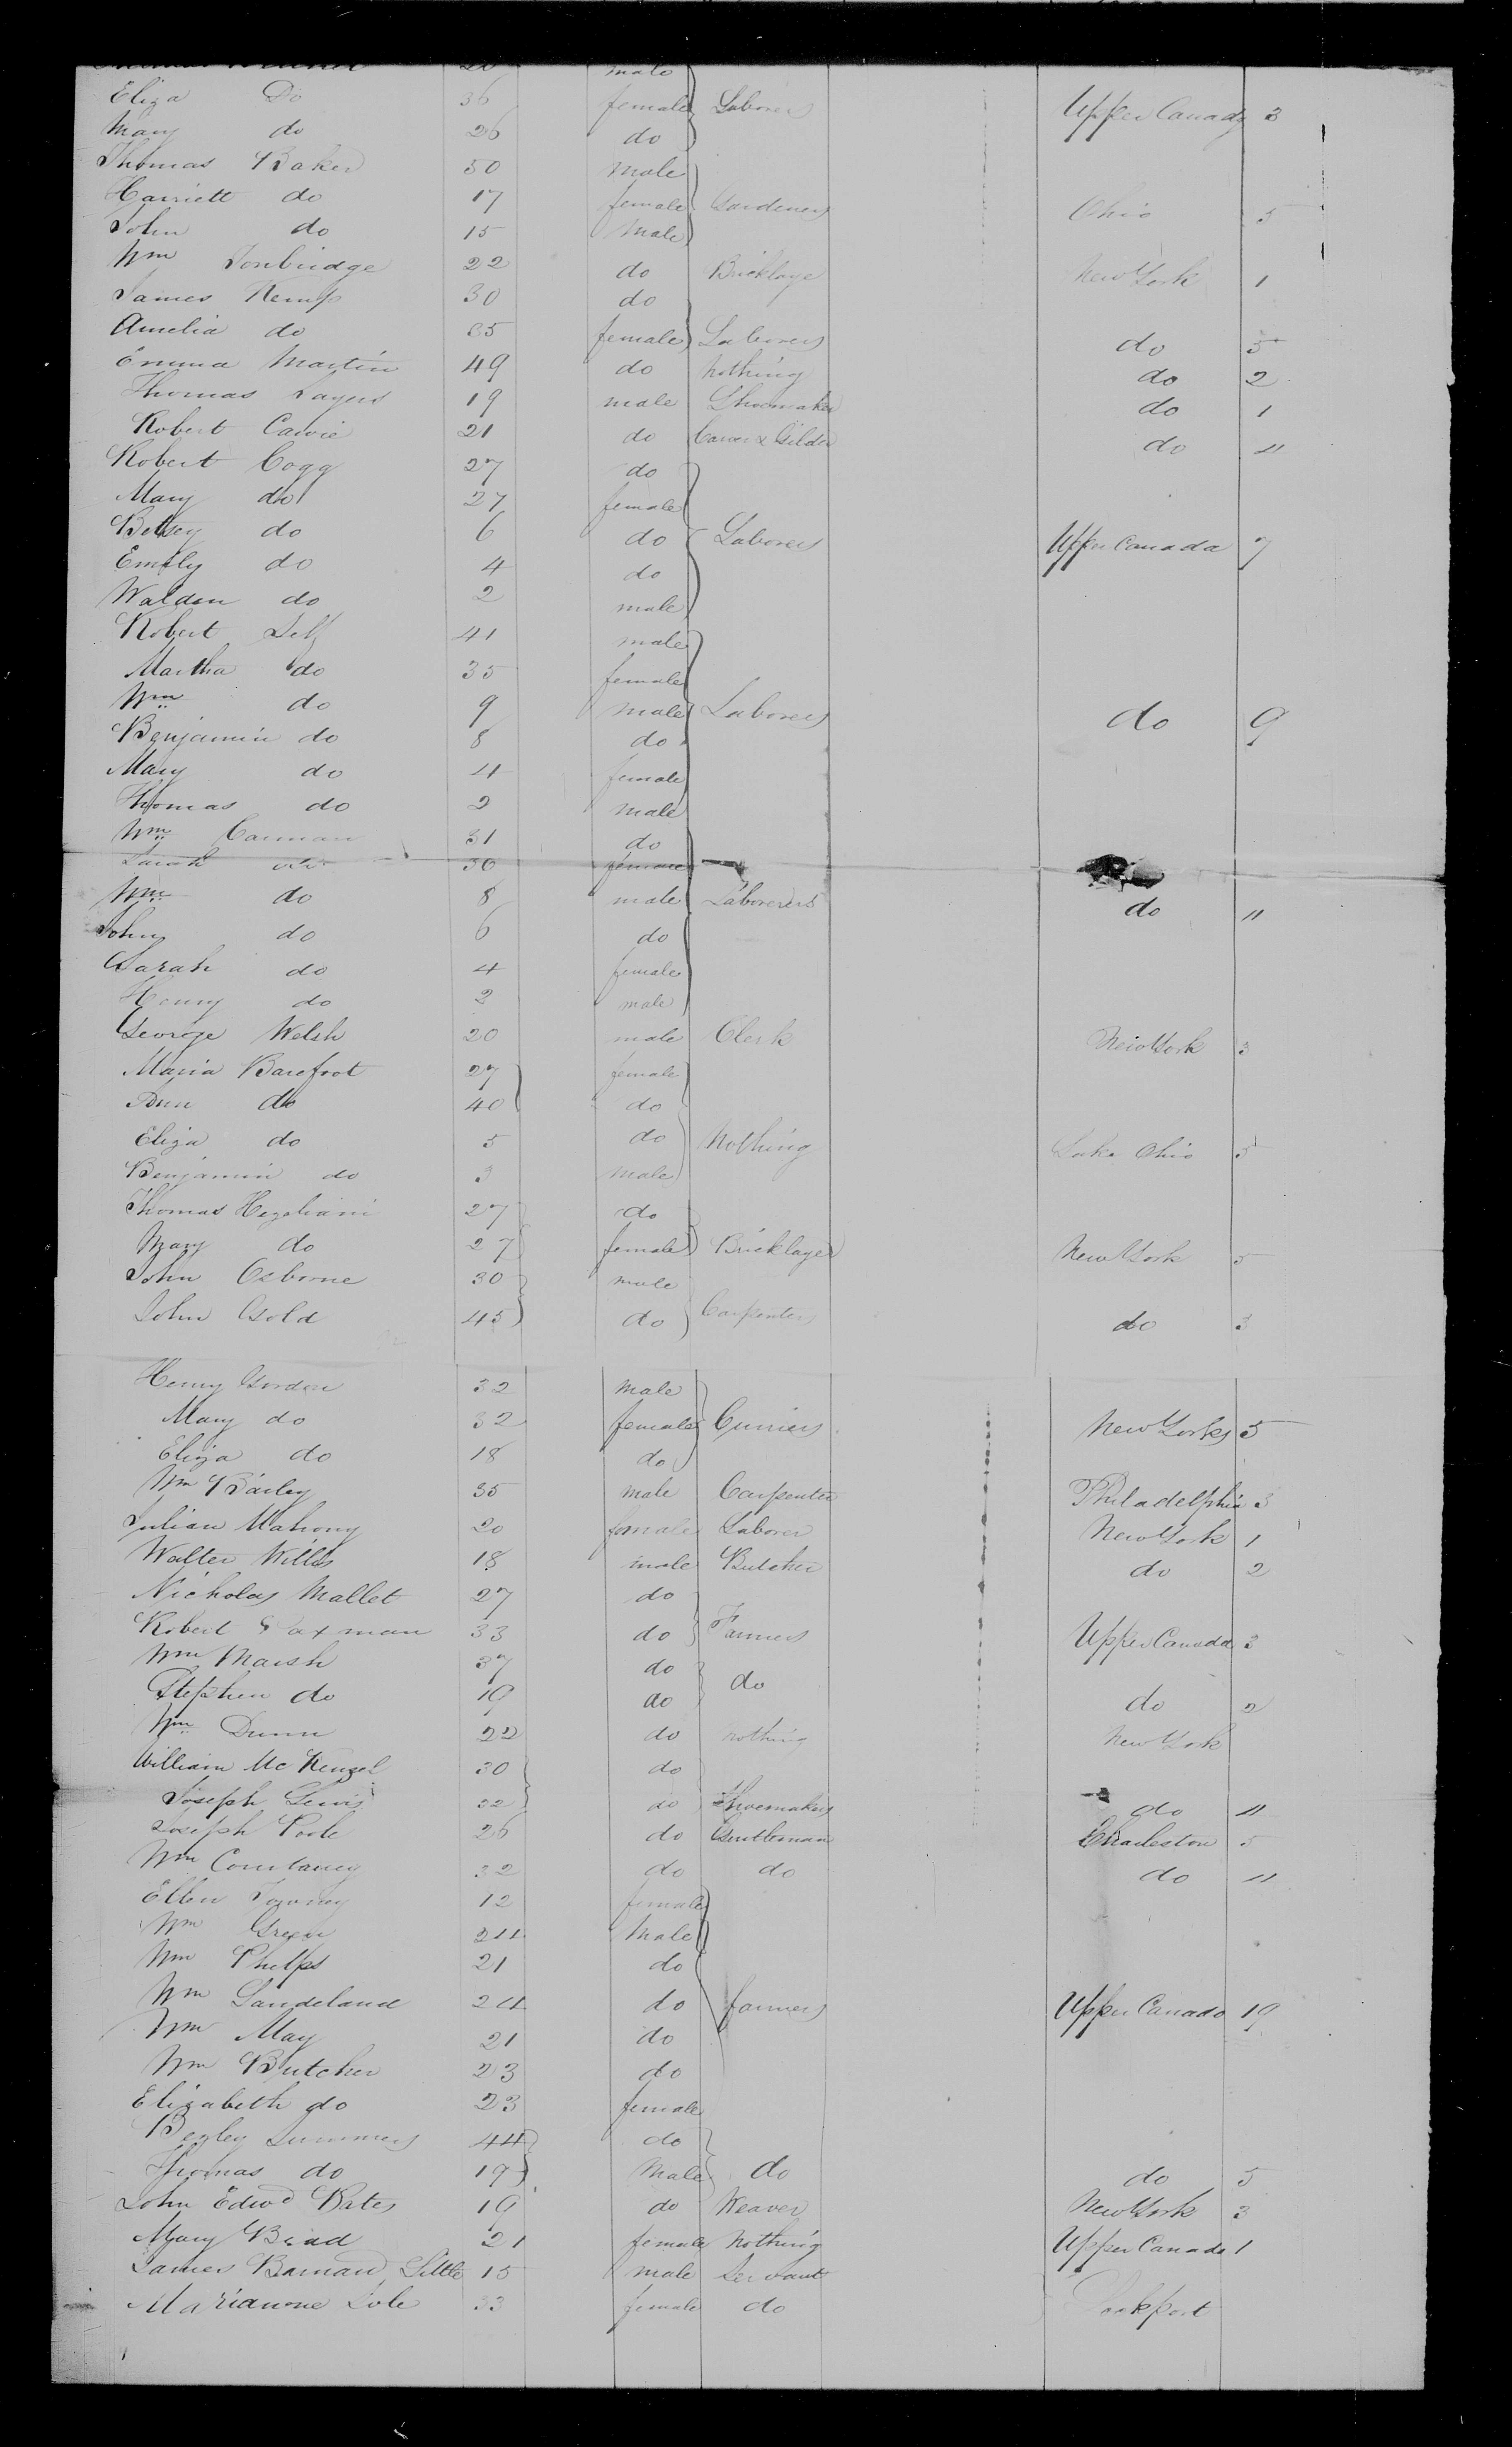 male
Eliza Do 36 female Laborers Upper Canada 3
Mary do 26 do
Thomas Baker 50 male
Harriett do 17 female Gardeners Ohio 5
John do 15 Male
Wm Tonbridge 22 do Bricklaye New York 1
James Kemp 30 do
Amelia do 35 female Laborers do 5
Emma Martin 49 do Nothing do 2
Thomas Layers 19 male Shoemaker do 1
Robert Carvie 21 do Carver & Gilder do "
Robert Cogg 27 do
Mary do 27 female
Betsey do 6 do Laborers Upper Canada 7
Emily do 4 do
Waldon do 2 male
Robert 41 male
Martha do 35 female
Wm do 9 male Laborers do 9
Benjamin do 8 do
Mary do 4 female
Thomas do 2 male
Wm Carman 31 do
Sarah do 30 female
Wm do 8 male Laborerers do "
John do 6 do
Sarah do 4 female
Henry do 2 male
George Welsh 20 male Clerk New York 3
Maria Barefoot 27 female
Ann do 40 do
Eliza do 5 do Nothing Lake Ohio 5
Benjamin do 3 male
Thomas 27 do
Mary do 27 female Bricklayer New York 5
John Osborne 30 male
John Gold 45 do Carpenters do 3
Henry Gordon 32 Male
Mary do 32 female Curriers New York 5
Eliza do 18 do
Wm Bailey 35 male Carpenter Philadelphia 3
Julian Mahony 20 female Laborer New York 1
Walter Willis 18 male Butcher do 2
Nicholas Mallet 27 do
Robert 33 do Farmers Upper Canada 3
Wm Marsh 37 do
Stephen do 19 do do do 2
Wm Dunn 22 do nothing New York
William Mc Kenzel 30 do
Joseph Lewis 32 do Shoemakers do "
Joseph Poole 26 do Gentleman Charleston 5
Wm Courtaney 32 do do do "
Ellen 12 female
Wm Green 24 Male
Wm Phelps 21 do
Wm Sandeland 24 do farmers Upper Canada 19
Wm May 21 do
Wm Butcher 23 do
Elizabeth do 23 female
Summers 44 do
Thomas do 19 Male do do 5
John Edwd Bates 19 do Weaver New York 3
Mary Bead 21 female Nothing Upper Canada 1
James Barnard Little 15 male Servant
Marianne Sole 33 female do Lockport